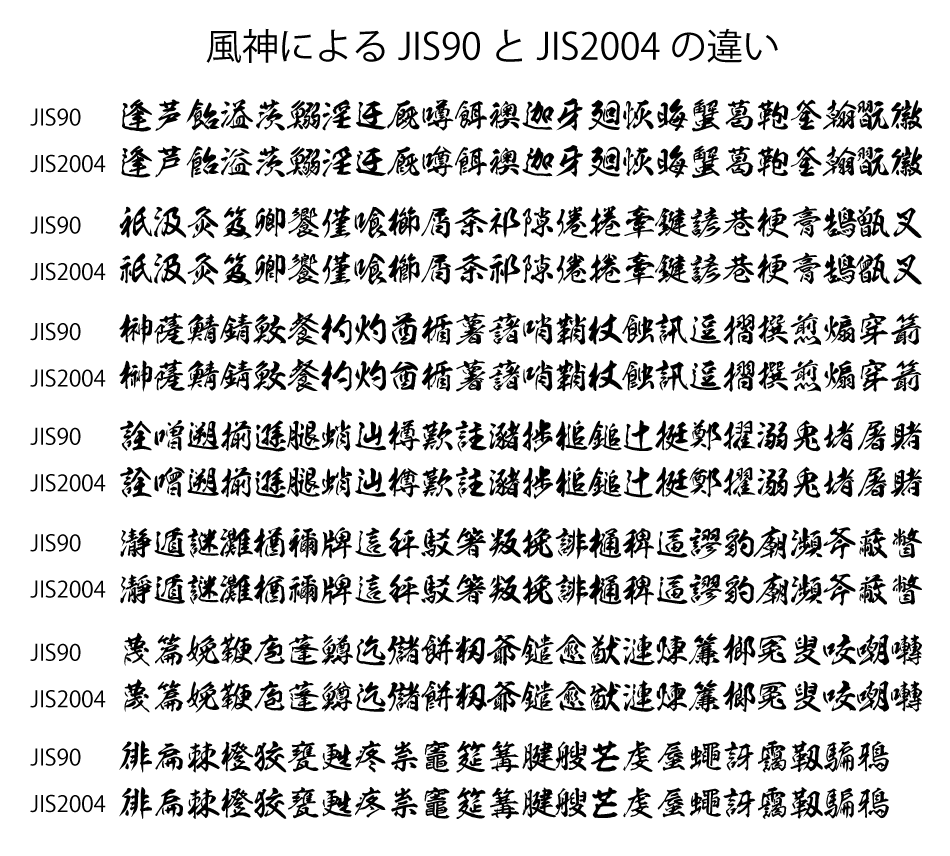 風神による JIS90 と JIS2004 の違い
JIS90 逢芦飴溢茨鰯淫迂厩噂餌襖迦牙廻恢晦蟹葛鞄釜翰翫徽
JIS2004 逢芦飴溢茨鰯淫迂厩噂餌襖迦牙廻恢晦蟹葛鞄釜翰翫徽
JIS90 祇汲灸笈卿饗僅喰櫛屑粂祁隙倦捲牽鍵諺巷梗膏鵠甑叉
JIS2004 祇汲灸笈卿饗僅喰櫛屑粂祁隙倦捲牽鍵諺巷梗膏鵠甑叉
JIS90 榊薩鯖錆鮫餐杓灼酋楯薯藷哨鞘杖蝕訊逗摺撰煎煽穿箭
JIS2004 榊薩鯖錆鮫餐杓灼酋楯薯藷哨鞘杖蝕訊逗摺撰煎煽穿箭
JIS90 詮噌遡揃遜腿蛸辿樽歎註瀦捗槌鎚辻挺鄭擢溺兎堵屠賭
JIS2004 詮噌遡揃遜腿蛸辿樽歎註瀦捗槌鎚辻挺鄭擢溺兎堵屠賭
JIS90 瀞遁謎灘楢禰牌這秤駁箸叛挽誹樋稗逼謬豹廟瀕斧蔽瞥
JIS2004 瀞遁謎灘楢禰牌這秤駁箸叛挽誹樋稗逼謬豹廟瀕斧蔽瞥
JIS90 蔑篇娩鞭庖蓬鱒迄儲餅籾爺鑓愈猷漣煉簾榔冤叟咬嘲囀
JIS2004 蔑篇娩鞭庖蓬鱒迄儲餅籾爺鑓愈猷漣煉簾榔冤叟咬嘲囀
JIS90 徘扁棘橙狡甕甦疼祟竈筵篝腱艘芒虔蜃蠅訝靄靱騙鴉
JIS2004 徘扁棘橙狡甕甦疼祟竈筵篝腱艘芒虔蜃蠅訝靄靱騙鴉